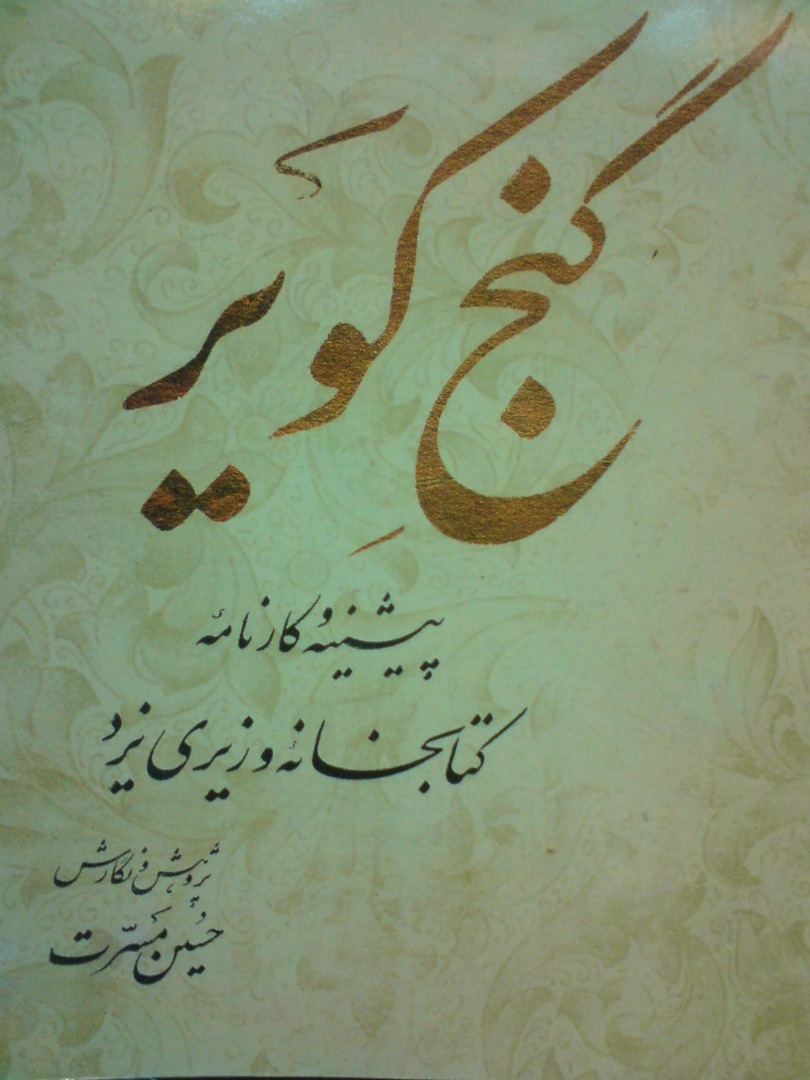 گنجِ کَویر
پیشینهٔ و کارنامهٔ
کتابخانهٔ وزیری یزد
پژوهش و نگارش
حُسین مَسرّت